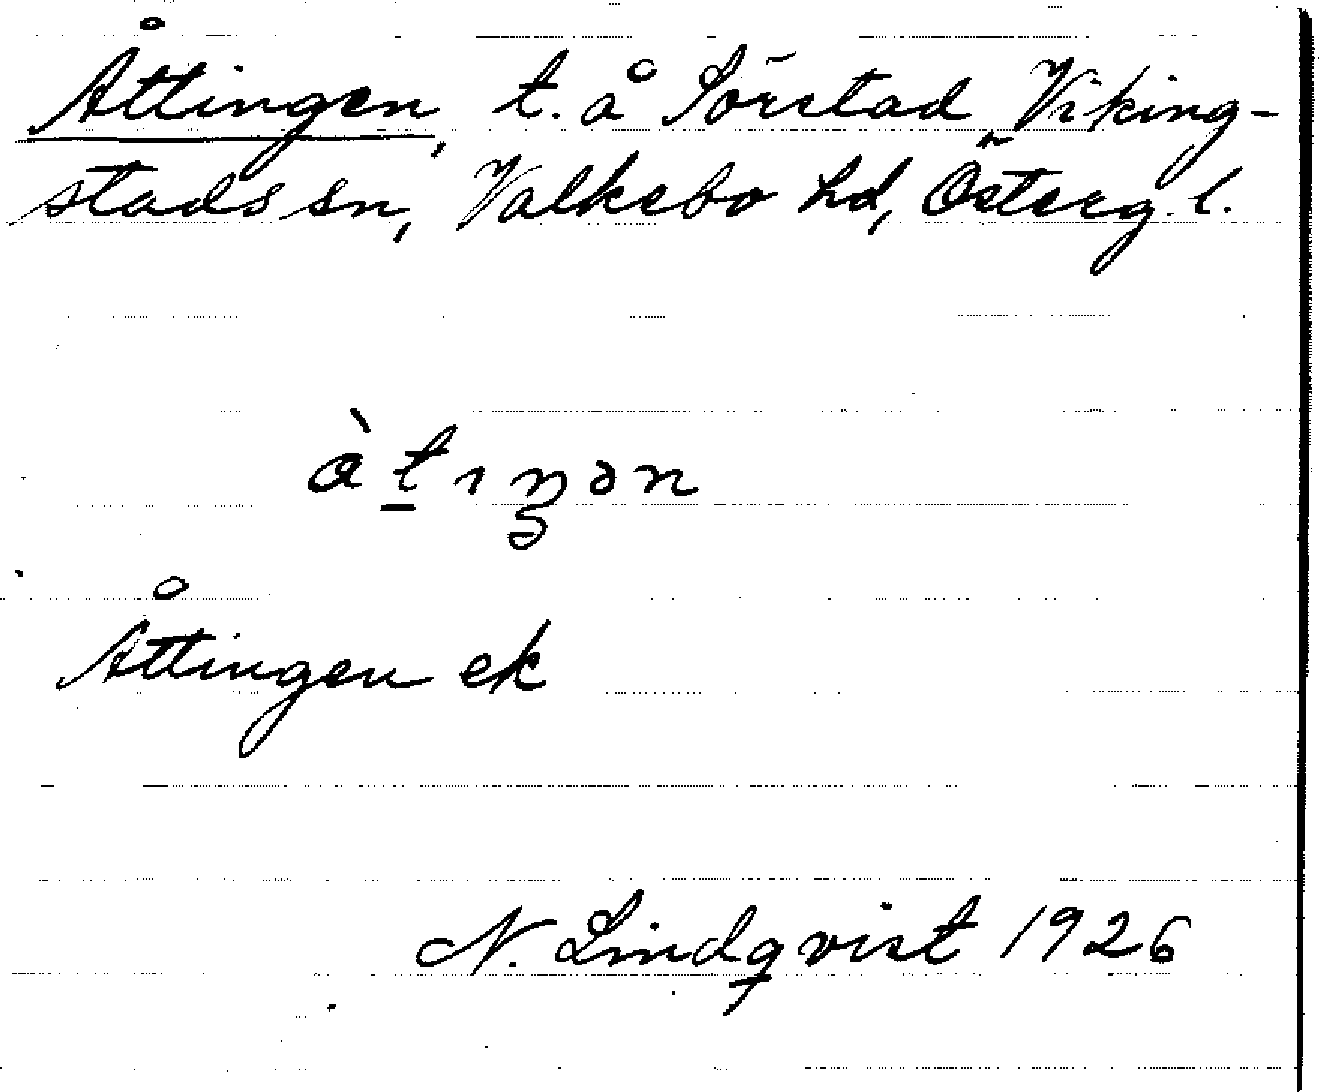 Åttingen, t. å Sörstad Viking-
stads sn, Valkebo hd, Österg. l.
àt̲ıŋən
Åttingen ek
N. Lindqvist 1926